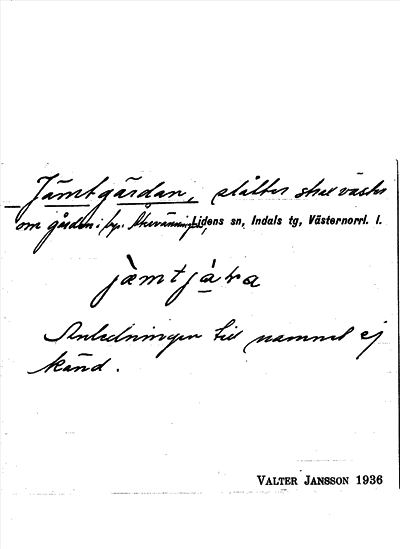 Jämtgärdan, slåtter strax väster
om gården i by. Lidens sn, Indals tg, Västernorrl. l.
jämtjàra
Anledningen till namnet ej
känd.
VALTER JANSSON 1936